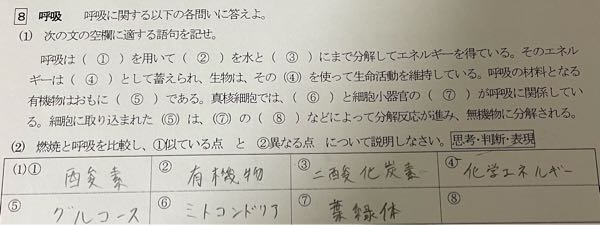 8 呼吸 呼吸に関する以下の各問いに答えよ。
(1) 次の文の空欄に適する語句を記せ。
呼吸は（ ① ）を用いて（ ② ）を水と（ ③ ）にまで分解してエネルギーを得ている。そのエネル
ギーは（ ④ ）として蓄えられ、生物は、その（ ④ ）を使って生命活動を維持している。呼吸の材料となる
有機物はおもに（ ⑤ ）である。真核細胞では、（ ⑥ ）と細胞小器官の（ ⑦ ）が呼吸に関係してい
る。細胞に取り込まれた（ ⑤ ）は、（ ⑦ ）の（ ⑧ ）などによって分解反応が進み、無機物に分解される。
(2) 燃焼と呼吸を比較し、①似ている点 と ②異なる点 について説明しなさい。 思考・判断・表現
(1)① 酸素 ② 有機物 ③ 二酸化炭素 ④ 化学エネルギー
⑤ グルコース ⑥ ミトコンドリア ⑦ 葉緑体 ⑧